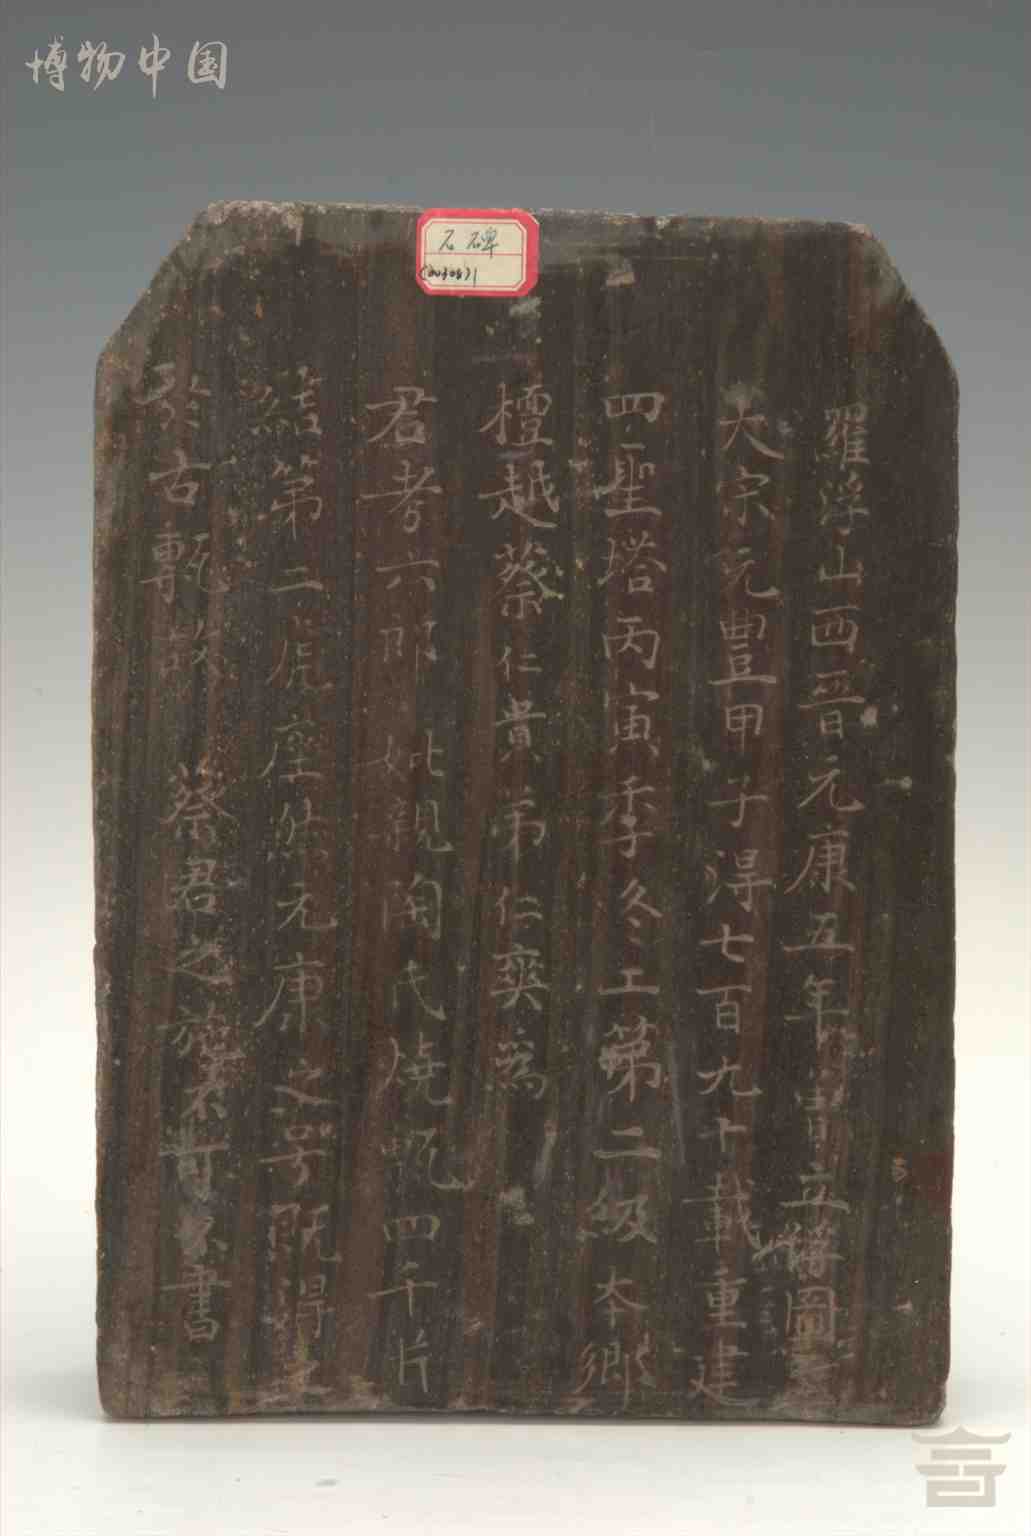 博物中国
石碑
羅浮山西晋元康五年 立塼圖
大宗元豐甲子淂七百九十載重建
四聖塔丙寅季冬工第二級本鄉
檀越蔡仁貴弟仁爽為
君考六郎妣親陶氏燒甎四千片
結第二虎座然元康之号既淂之
於古甎故 蔡君之施不可不書